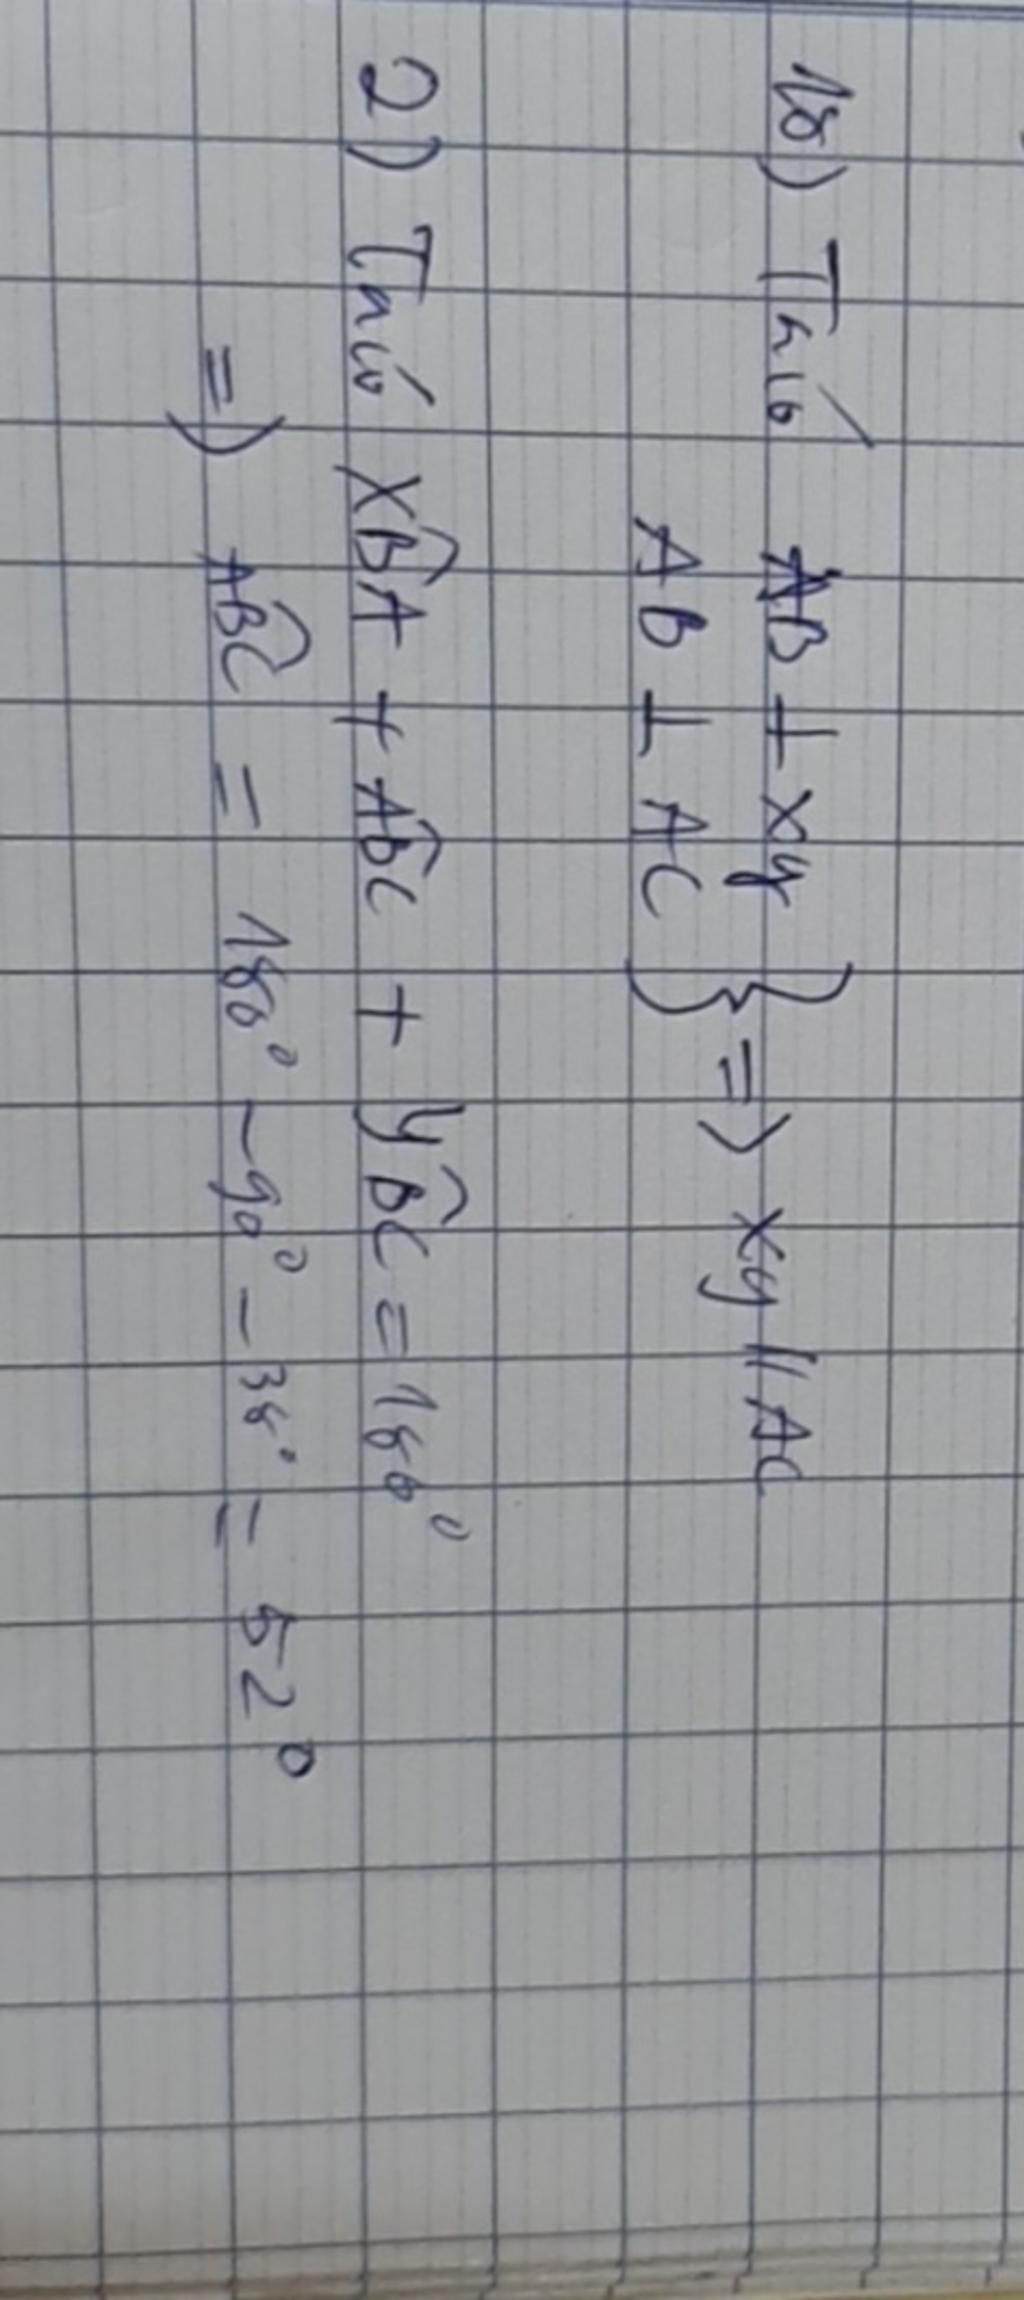 1b) Ta có AB ⊥ xy
AB ⊥ AC } => xy // AC
2) Ta có xB̂A + AB̂C + yB̂C = 180°
=) AB̂C = 180° - 90° - 38° = 52°